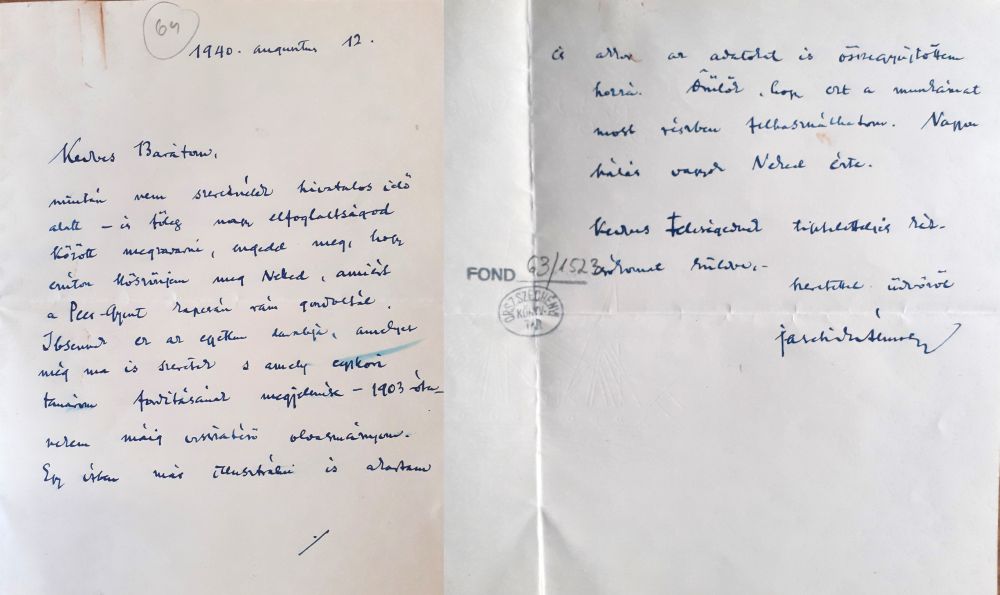 64
1940. augusztus 12.
Kedves Barátom,
miután nem szeretnélek hivatalos idő
alatt – is főleg nagy elfoglaltságod
között megzavarni, engedd meg, hogy
ezúton köszönjem meg Neked, amiért
a Peer-Gynt kapcsán rám gondoltál.
Ibsennek ez az egyetlen darabja, amelyet
még ma is szeretek s amely egykori
tanárom fordításának megjelenése – 1903 óta –
nekem máig visszatérő olvasmányom.
Egy ízben már illusztrálni is akartam
és akkor az adatokat is összegyűjtöttem
hozzá. Örülök, hogy ezt a munkámat
most részben felhasználhatom. Nagyon
hálás vagyok Neked érte.
Kedves Feleségednek tiszteletteljes kéz-
csókomat küldve,-
szeretettel üdvözöl
Jaschik Álmos
FOND 63/1523
ORSZ. SZÉCHÉNYI
KÖNYV-
TÁR